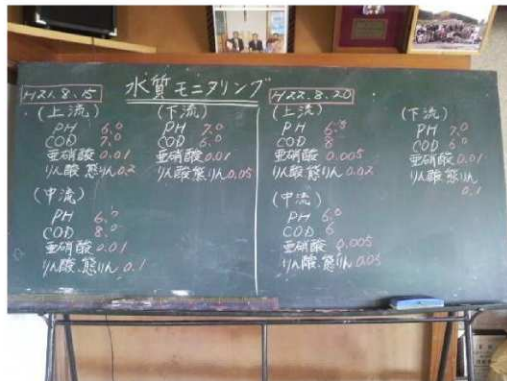 水質モニタリング
H21.8.15
(上流)
PH 6.0
COD 7.0
亜硝酸 0.01
りん酸態りん 0.2
(下流)
PH 7.0
COD 6.0
亜硝酸 0.01
りん酸態りん 0.05
(中流)
PH 6.
COD 8.0
亜硝酸 0.01
りん酸.態りん 0.1
H22.8.20
(上流)
PH 6.
COD 8
亜硝酸 0.005
りん酸.態りん 0.02
(下流)
PH 7.0
COD 6
亜硝酸 0.01
りん酸態りん
0.1
(中流)
PH 6.0
COD 6
亜硝酸 0.005
りん酸.態りん 0.05